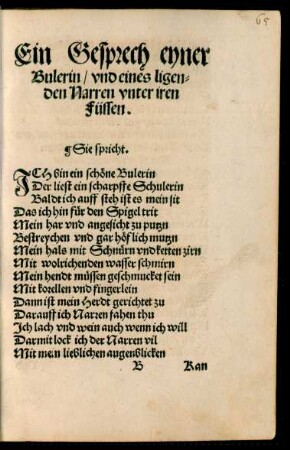 65
Ein Gesprech eyner
Bulerin/ vnd eines ligen-
den Narren vnter iren
Füssen.
¶ Sie spricht.
ICH bin ein schöne Bulerin
Der liest ein scharpffe Schulerin
Baldt ich auff steh ist es mein sit
Das ich hin für den Spigel trit
Mein har vnd angesicht zu putzn
Bestreychen vnd gar höflich mutzn
Mein hals mit Schnürn vnd ketten zirn
Mit wolrichenden wasser schmirn
Mein hendt müssen geschmucket sein
Mit korellen vnd fingerlein
Dann ist mein Herdt gerichtet zu
Darauff ich Narren fahen thu
Ich lach vnd wein auch wenn ich will
Darmit lock ich der Narren vil
Mit mein lieblichen augenblicken
B Kan